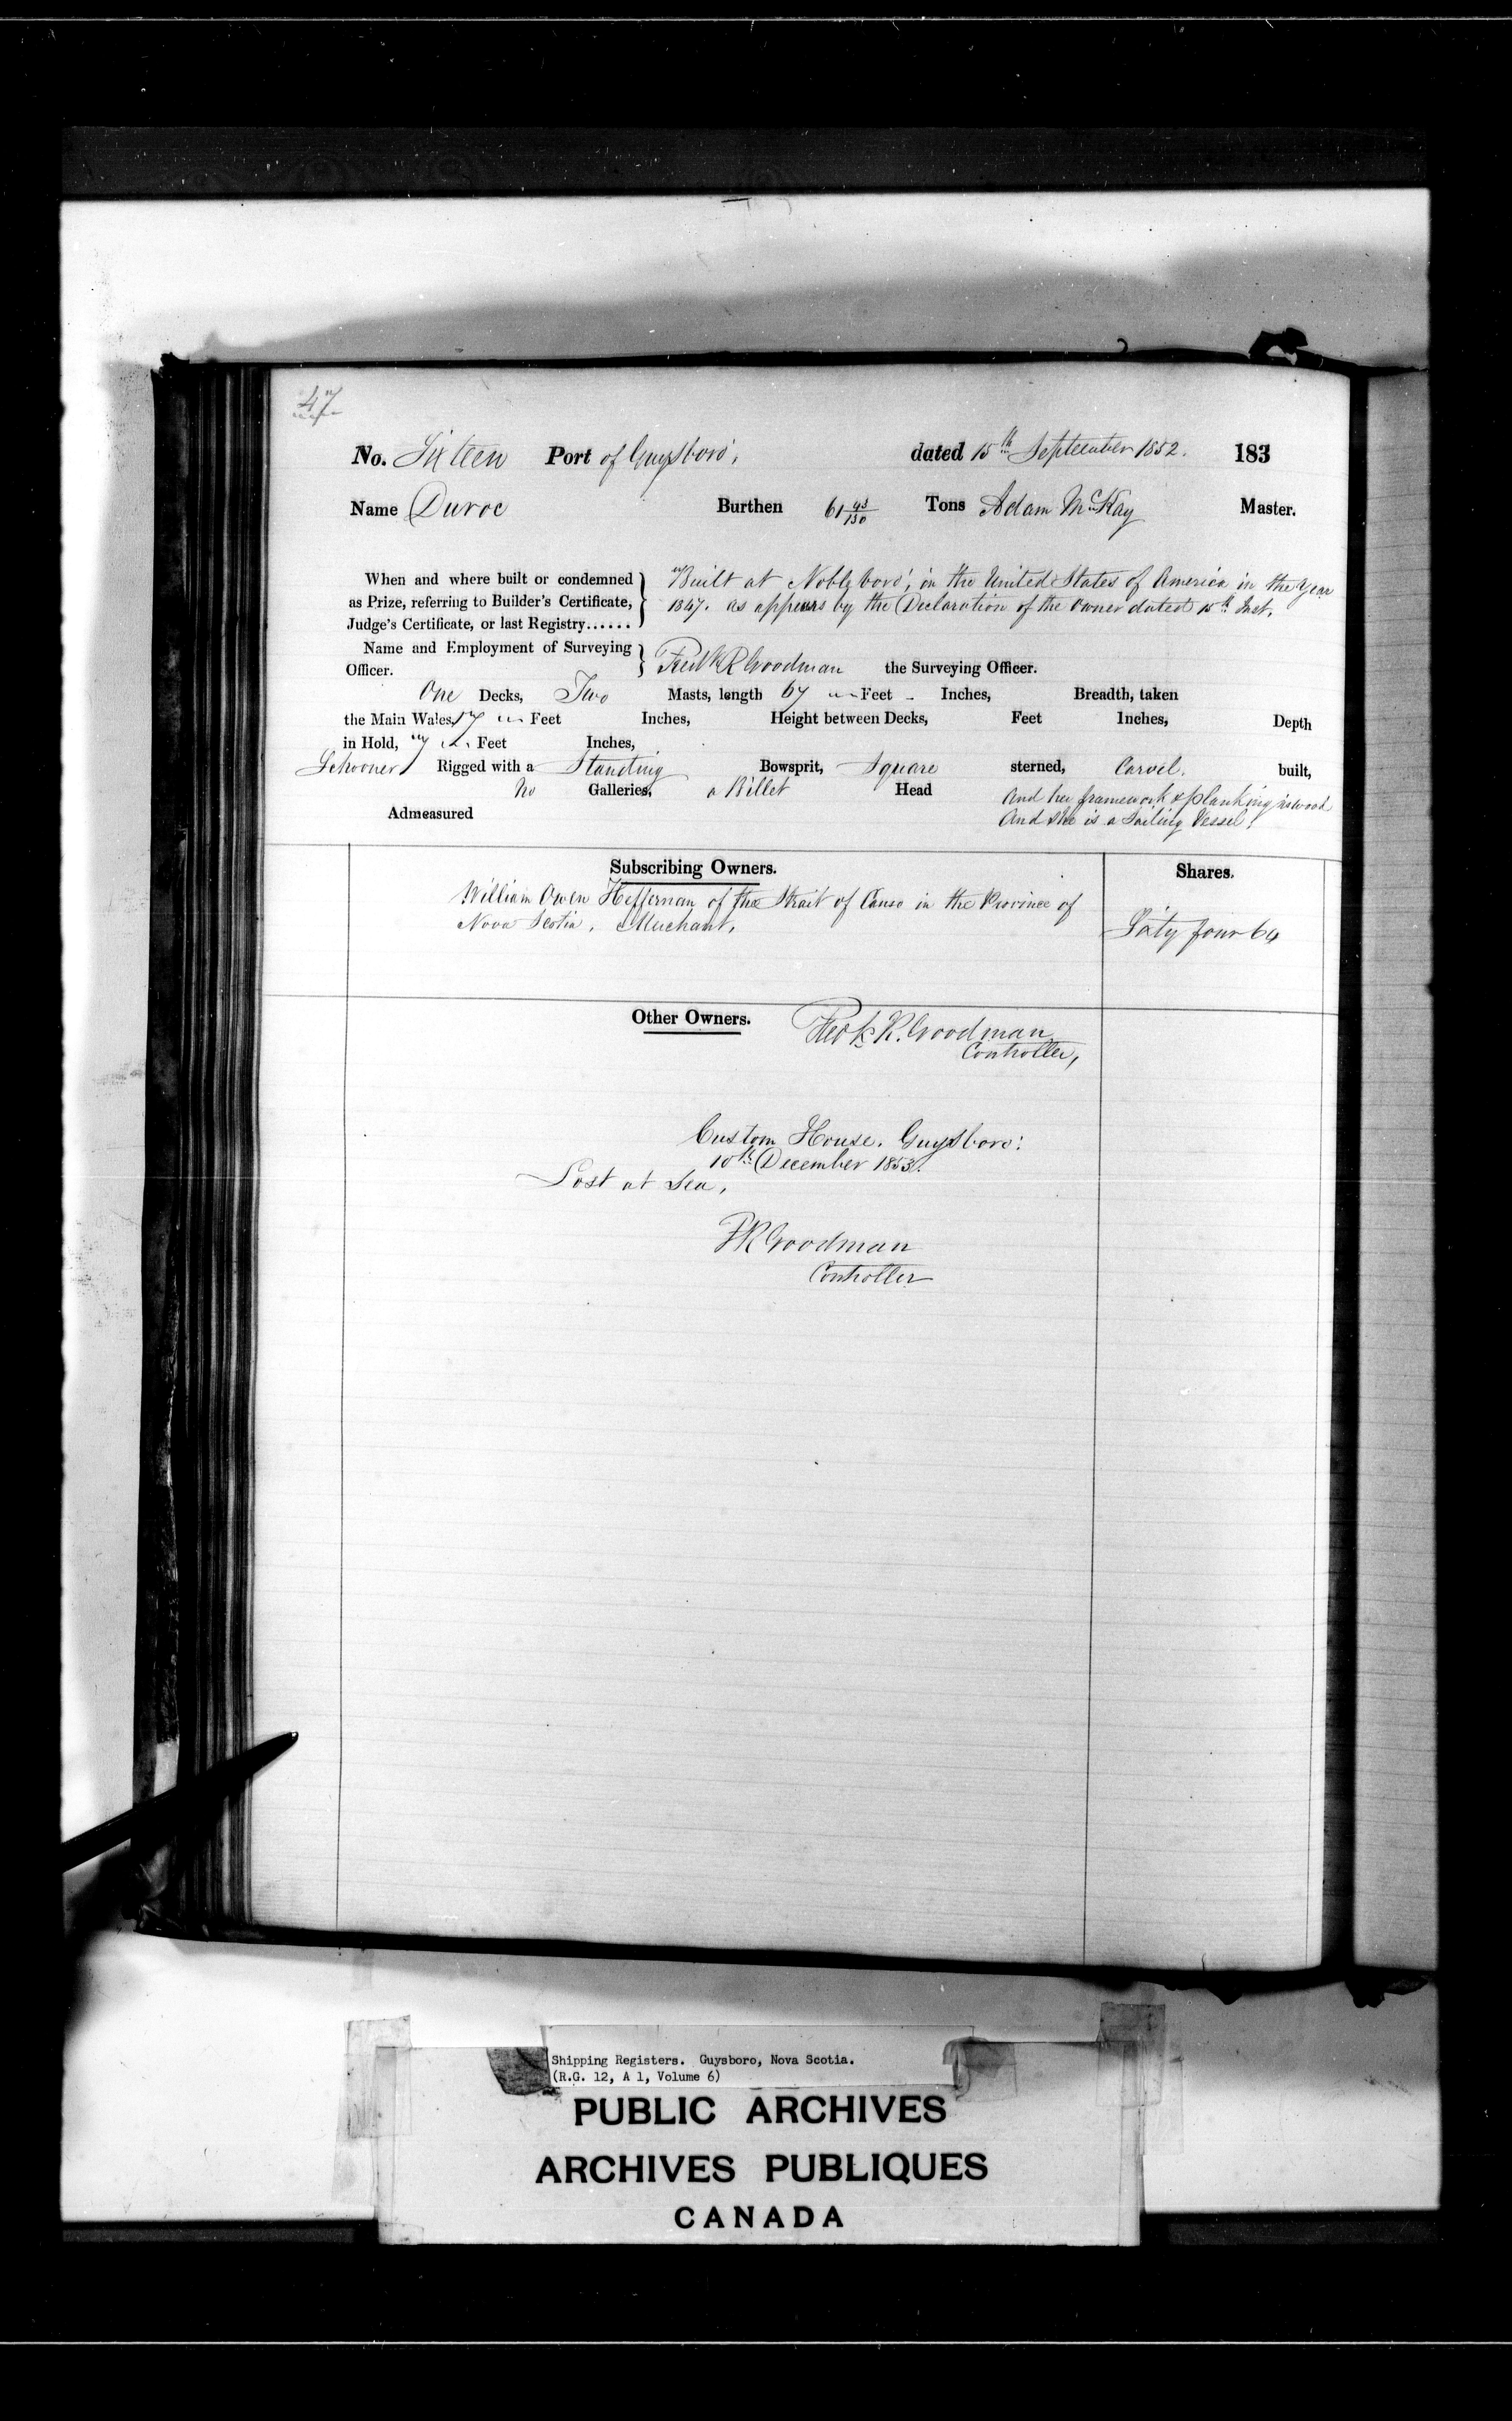 47
No. Sixteen Port of Guysboro', dated 15th September 1852. 183
Name Duroc Burthen 61 Tons Adam McKay Master.
When and where built or condemned as Prize, referring to Builder's Certificate, Judge's Certificate, or last Registry......
Built at Nobleboro', in the United States of America in the Year
1847. as appears by the Declaration of the Owner dated 15th Inst,
Name and Employment of Surveying Officer. Fredk R Goodman the Surveying Officer.
One Decks, Two Masts, length 67 Feet - Inches, Breadth, taken
the Main Wales, 17 Feet Inches, Height between Decks, Feet Inches, Depth
in Hold, 7 Feet Inches,
Schooner Rigged with a Standing Bowsprit, Square sterned, Carvel. built,
No Galleries, a Billet Head And her framework & planking is wood
Admeasured And she is a Sailing Vessel.
Subscribing Owners. Shares.
William Owen Heffernan of the Strait of Canso in the Province of
Nova Scotia, Merchant, Sixty four 64
Other Owners. Fredk R. Goodman
Controller,
Custom House, Guysboro:
10th December 1853.
Lost at Sea,
FR Goodman
Controller
Shipping Registers. Guysboro, Nova Scotia.
(R.G. 12, A 1, Volume 6)
PUBLIC ARCHIVES
ARCHIVES PUBLIQUES
CANADA